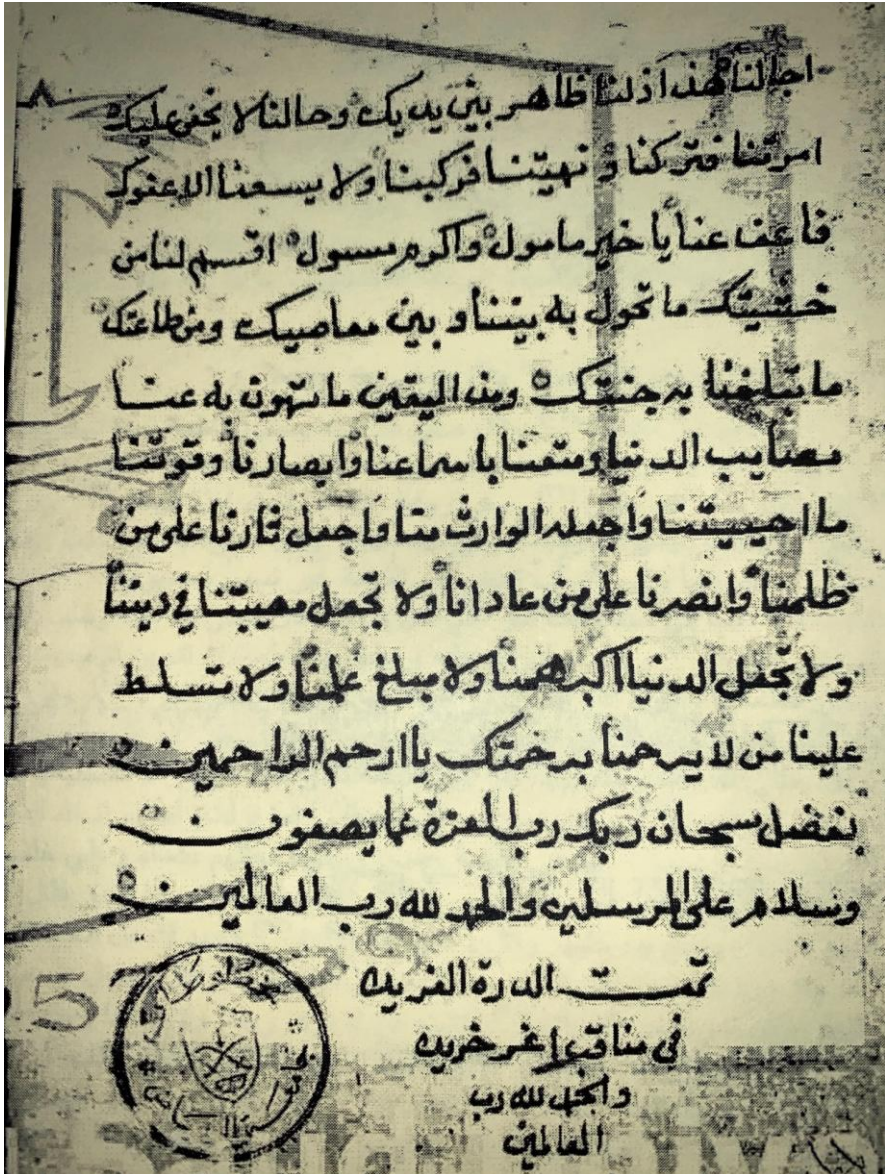 اجالنا هذا ذلنا ظاهر بين يديك وحالنا لا يخفى عليك
امرتنا فتركنا و نهيتنا فركبنا ولا يسعنا الا عفوك
فاعف عنا يا خير مامول واكرم مسول اقسم لنا من
خشيتك ما تحول به بيننا و بين معاصيك ومن طاعتك
ما تبلغنا به جنتك ومن اليقين ما تهون به عنا
مصايب الدنيا ومتعنا باسماعنا وابصارنا وقوتنا
ما احييتنا واجعله الوارث منا واجعل ثارنا على من
ظلمنا وانصرنا على من عادانا ولا تجعل مصيبتنا في ديننا
ولا تجعل الدنيا اكبر همنا ولا مبلغ علمنا ولا تسلط
علينا من لا يرحمنا برحمتك يا ارحم الراحمين
بفضل سبحان ربك رب العزة عما يصفون
وسلام على المرسلين والحمد لله رب العالمين
تمت الدرة الفريده
في مناقب خريده
والحمد لله رب
العالمين
مخطوطات
جامعة الرياض